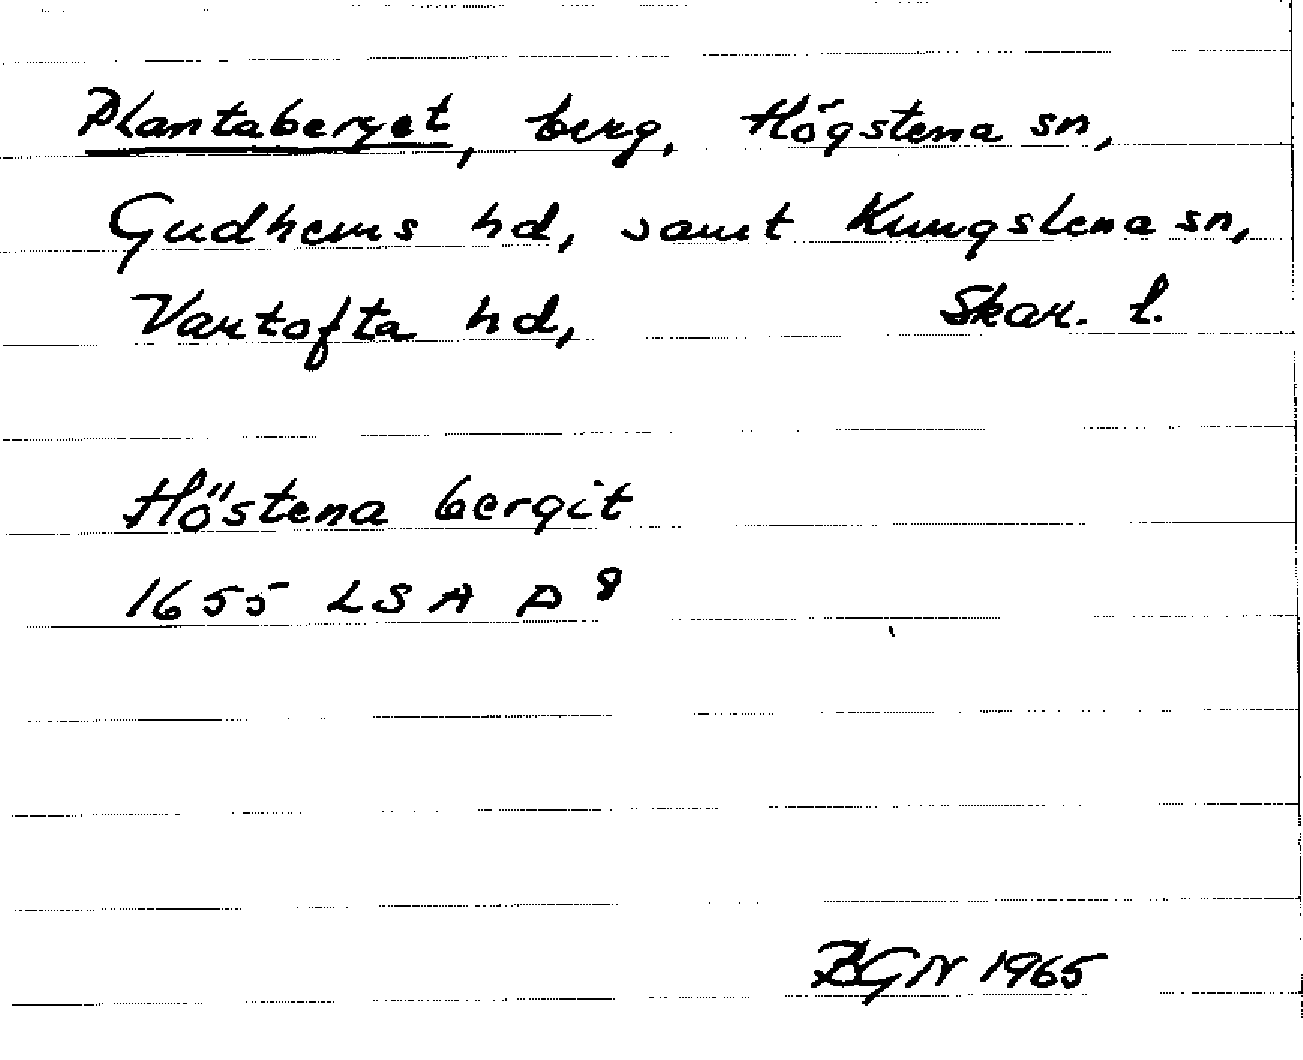 Plantaberget, berg, Högstena sn,
Gudhems hd, samt Kungslena sn,
Vartofta hd, Skar. l.
Höstena bergit
1655 LSA D 8
BGN 1965